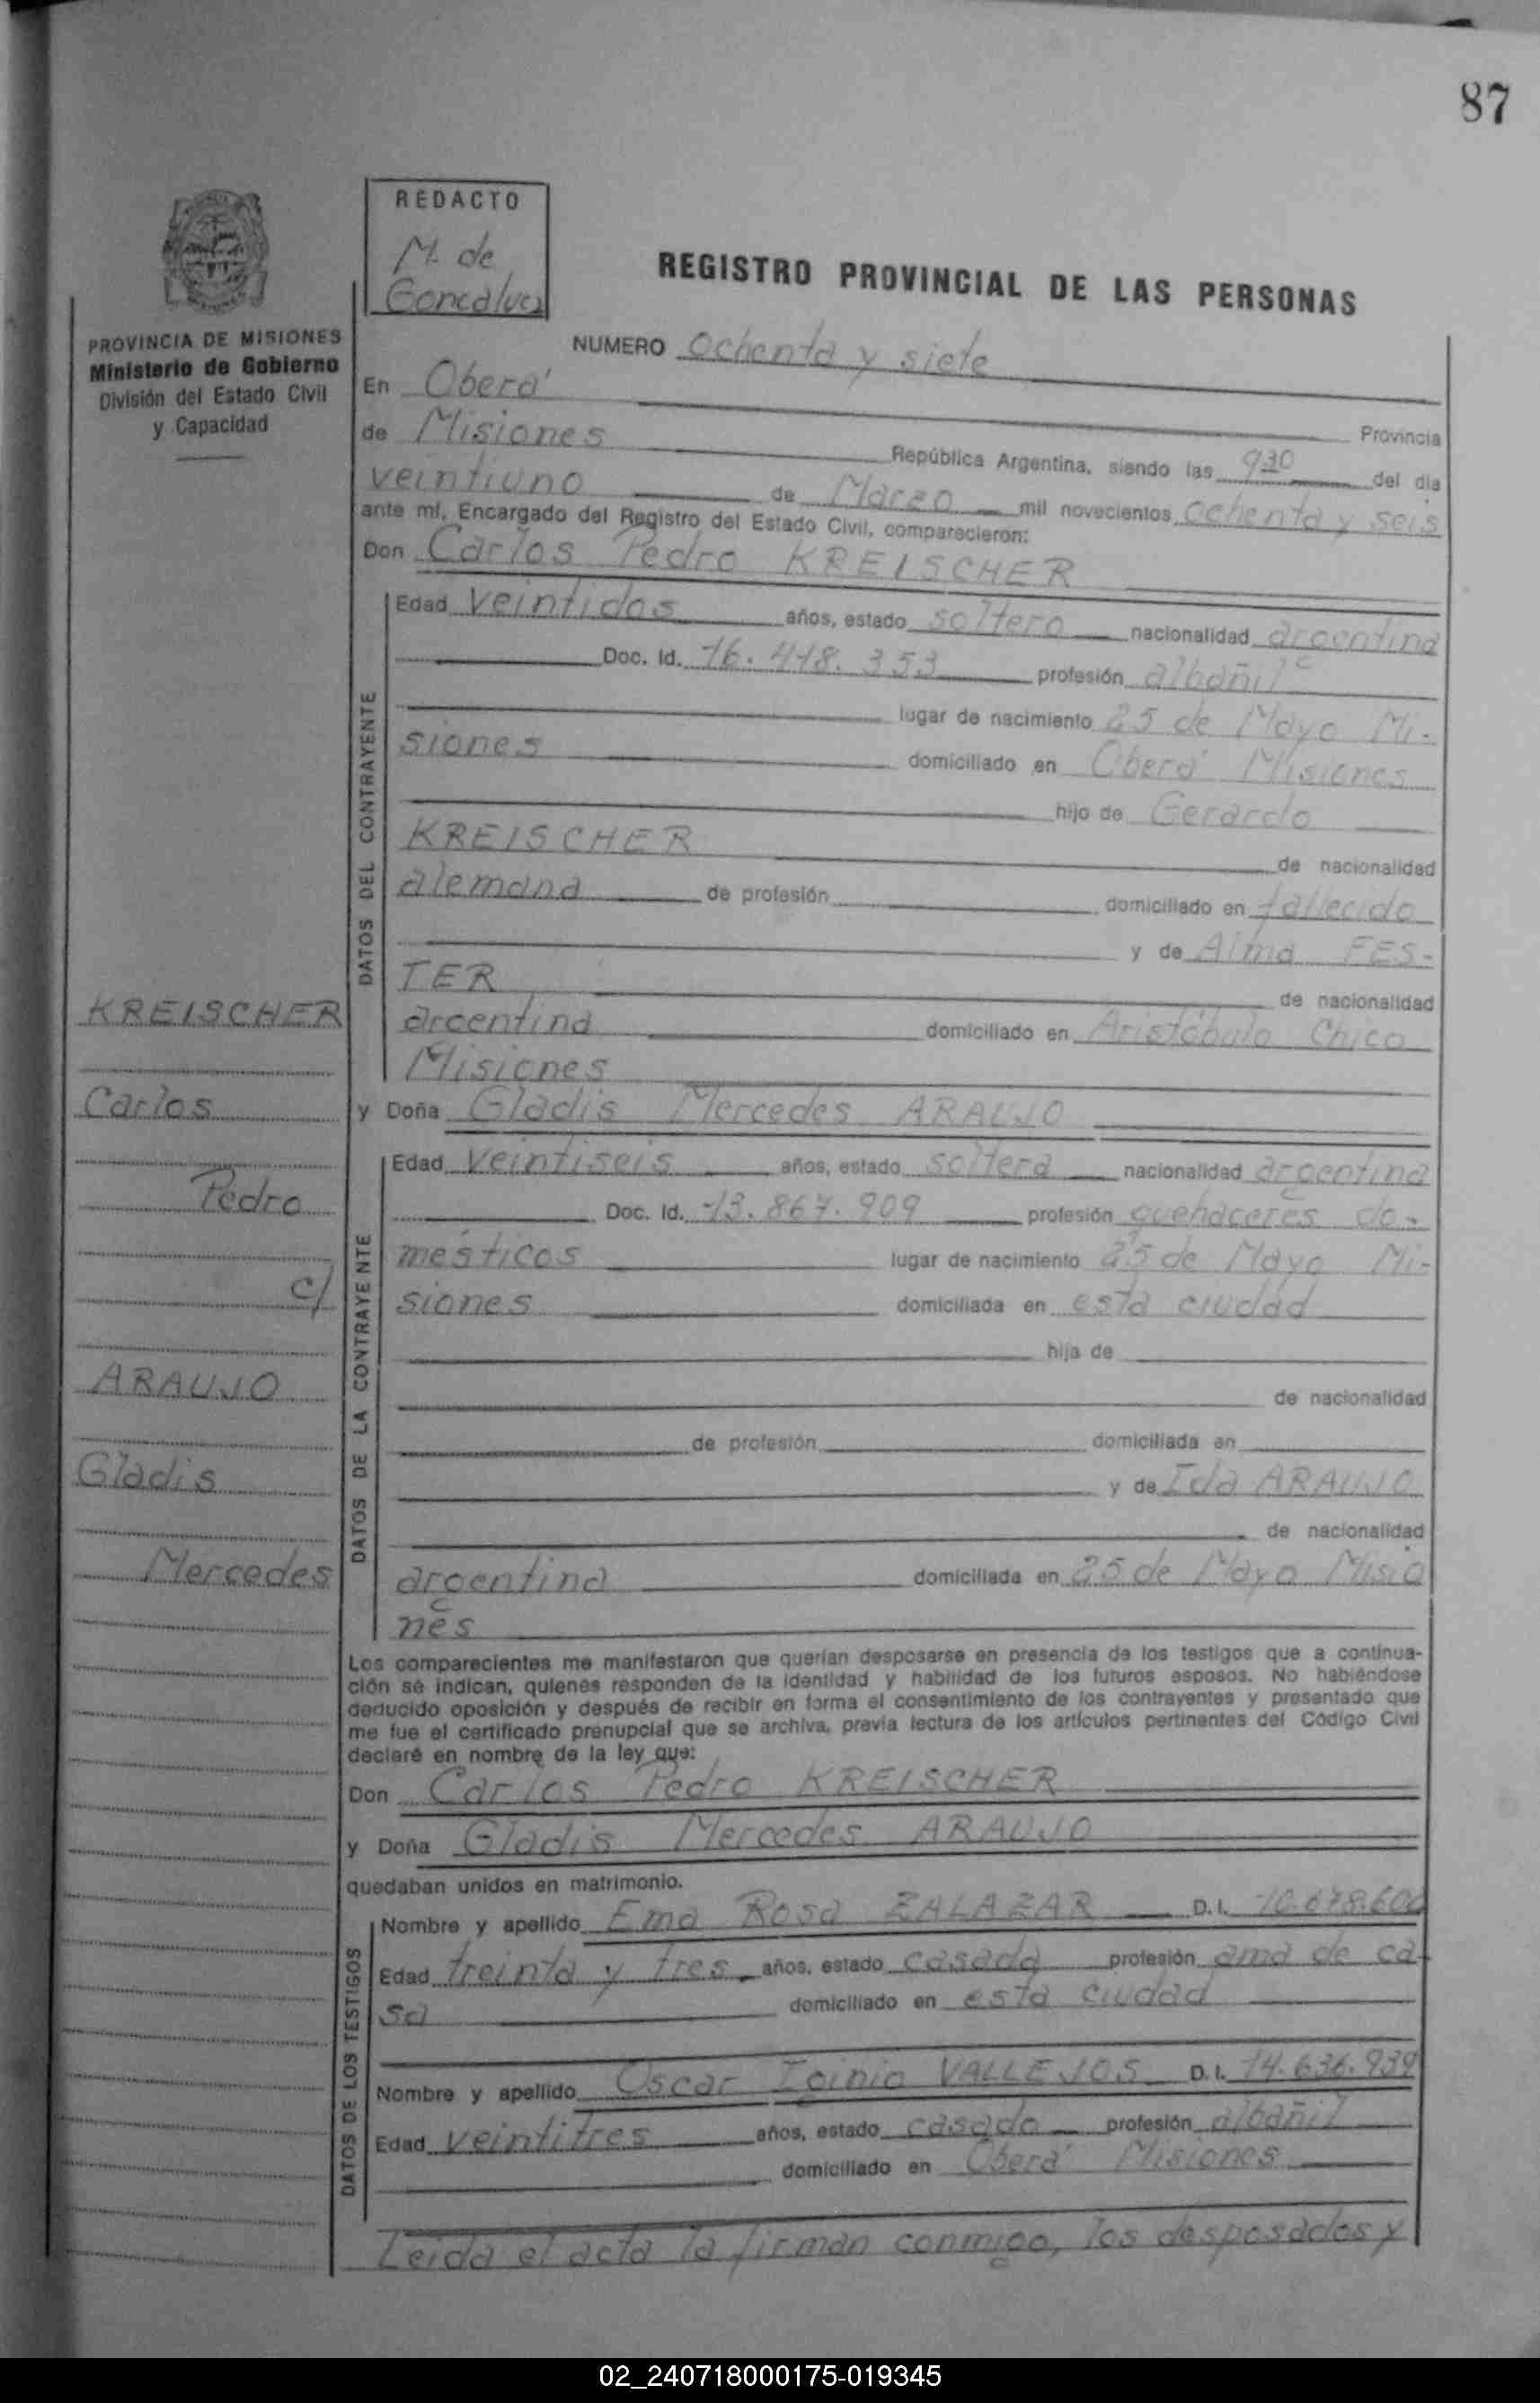 87
REDACTO
M. de
Goncalvez
REGISTRO PROVINCIAL DE LAS PERSONAS
PROVINCIA DE MISIONES
Ministerio de Gobierno
División del Estado Civil
y Capacidad
NUMERO ochenta y siete
En Oberá
Provincia
de Misiones República Argentina, siendo las 930 del día
veintiuno de Marzo mil novecientos ochenta y seis
ante mí, Encargado del Registro del Estado Civil, comparecieron:
Don Carlos Pedro KREISCHER
DATOS DEL CONTRAYENTE
Edad veintidos años, estado soltero nacionalidad argentina
Doc. Id. 16.418.353 profesión albañil
lugar de nacimiento 25 de Mayo Mi-
siones domiciliado en Oberá Misiones
hijo de Gerardo
KREISCHER de nacionalidad
alemana de profesión domiciliado en fallecido
y de Alma FES-
TER de nacionalidad
argentina domiciliado en Aristóbulo Chico
Misiones
y Doña Gladis Mercedes ARAUJO
DATOS DE LA CONTRAYENTE
Edad veintiseis años, estado soltera nacionalidad argentina
Doc. Id. 13.867.909 profesión quehaceres do-
mésticos lugar de nacimiento 25 de Mayo Mi-
siones domiciliada en esta ciudad
hija de
de nacionalidad
de profesión domiciliada en
y de Ida ARAUJO
de nacionalidad
argentina domiciliada en 25 de Mayo Misio
nes
KREISCHER
Carlos
Pedro
c/
ARAUJO
Gladis
Mercedes
Los comparecientes me manifestaron que querían desposarse en presencia de los testigos que a continua-
ción se indican, quienes responden de la identidad y habilidad de los futuros esposos. No habiéndose
deducido oposición y después de recibir en forma el consentimiento de los contrayentes y presentado que
me fue el certificado prenupcial que se archiva, previa lectura de los artículos pertinentes del Código Civil
declaré en nombre de la ley que:
Don Carlos Pedro KREISCHER
y Doña Gladis Mercedes ARAUJO
quedaban unidos en matrimonio.
DATOS DE LOS TESTIGOS
Nombre y apellido Ema Rosa ZALAZAR D.I. 10.678.600
Edad treinta y tres años, estado casada profesión ama de ca-
sa domiciliado en esta ciudad
Nombre y apellido Oscar Iginio VALLEJOS D.I. 14.636.939
Edad veintitres años, estado casado profesión albañil
domiciliado en Oberá Misiones
Leida el acta la firman conmigo, los desposados y
02_240718000175-019345